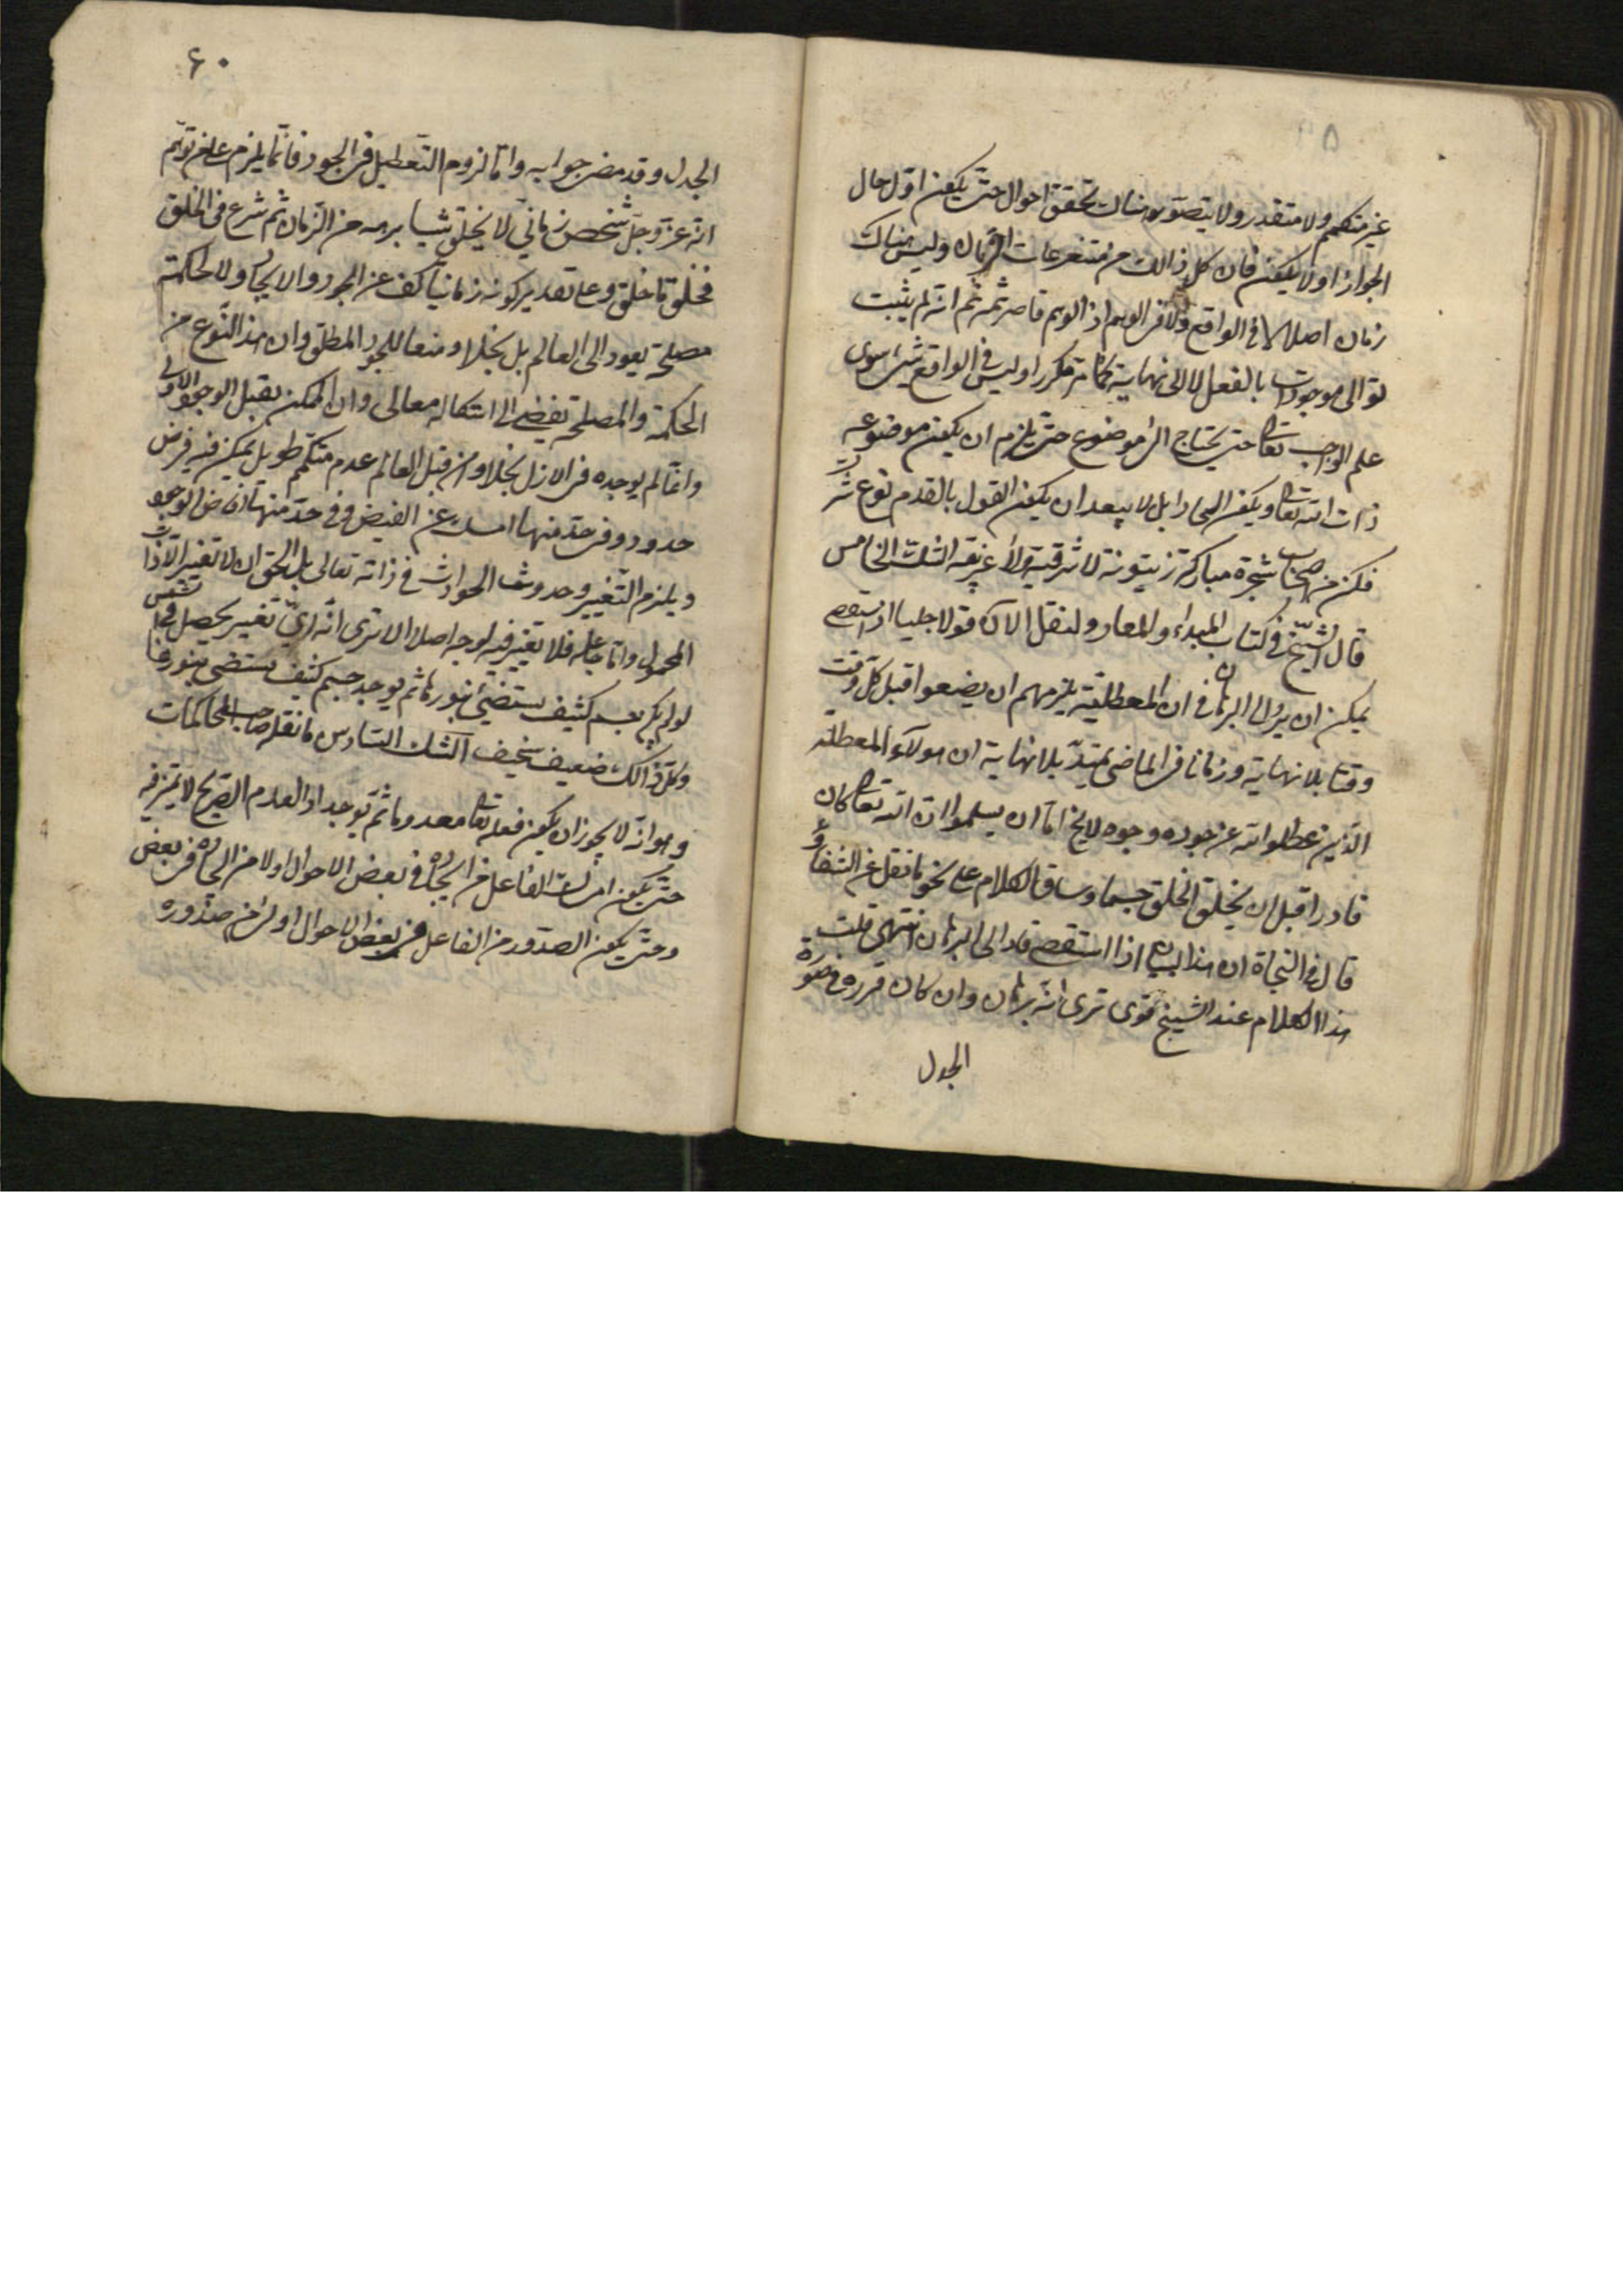 غير متكمم ولا متقدر ولا يتصور هناك تحقق احوال حتى يكون اول حال
الجواز او لا يكون فان كل ذالك من متفرعات الزمان وليس هناك
زمان اصلا لا في الواقع ولا في الوهم اذ الوهم قاصر ثمه ثم انه لم يثبت
توالى موجودات بالفعل لا الى نهاية كما مر مكررا وليس في الواقع شئ سوى
علم الواجب تعالى حتى يحتاج الى موضوع حتى يلزم ان يكون موضوعه
ذات الله تعالى ويكون ابل لا يبعد ان يكون القول بالقدم نوع شرك
فكن من اصحاب شجرة مباركة زيتونة لا شرقية ولا غربية الشك الخامس
قال الشيخ في كتاب المبداء والمعاد ولنقل الآن قولا جليا اذا استقصى
يمكن ان يرد الى البرهان في ان المعطلية يلزمهم ان يضعوا قبل كل وقت
وقتا بلا نهاية وزمانا في الماضى يمتد بلا نهاية ان هولآء المعطلة
الذين عطلوا الله عن جوده وجوده لا يخ اما ان يسلموا ان الله تعالى كان
قادرا قبل ان يخلق الخلق جسما وساق الكلام على نحو ما نقل عن الشفاء و
قال في النجاة ان هذا البيان اذا استقصى قاد الى البرهان انتهى قلت
هذا الكلام عند الشيخ قوى ترى انه برهان وان كان قرره في صورة
الجدل
۶۰
الجدل وقد مضى جوابه واما لزوم التعطيل في الجود فانما يلزم على من توهم
انه عز وجل شخص زمانى لا يخلق شيا برهه من الزمان ثم شرع في الخلق
فخلق ما خلق وعلى تقدير كونه زمانيا كف عن الجود والايجاد لا لحكمة
مصلحة يعود الى العالم بل بخلا ومنعا للجود المطلق وان هذا النوع من
الحكمة والمصلحة يفضى الى استكماله معالى وان الممكن يقبل الوجود الازلى
وانما لم يوجده في الازل بخلا وان قبل العالم عدم متكمم طويل يمكن فيه فرض
حدود وفي حد منها امسك عن الفيض وفي حد منها افاض الوجود
ويلزم التغيير وحدوث الحوادث في ذاته تعالى بل الحق ان لا تغير الا في ذات
المجعول واما جاعله فلا تغير فيه لوجه اصلا الا ترى انه اى تغير يحصل في الشمس
لو لم يكن جسم كثيف يستضئ بنورها ثم يوجد جسم كثيف يستضى بنورها
وكل ذالك ضعيف سخيف الشك السادس ما نقله صاحب المحاكمات
وهو انه لا يجوز ان يكون فعله تعالى معدوما ثم يوجد اذ العدم الصريح لا تميز فيه
حتى يكون امساك الفاعل من ايجاده في بعض الاحوال اولى من ايجاده في بعض
وحتى يكون الصدور من الفاعل في بعض الاحوال اولى من صدوره